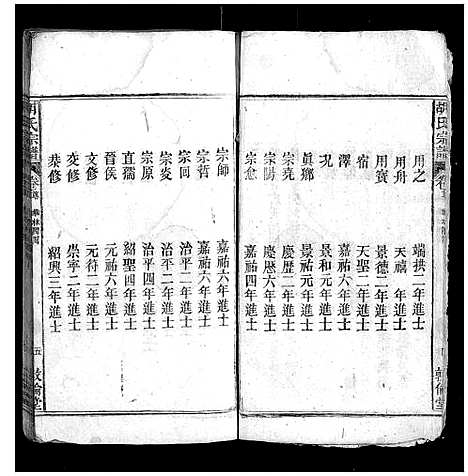 胡氏宗譜
用之 端拱二年進士
用舟 天禧 年進士
用賓 景德二年進士
況 天聖二年進士
澤 嘉祐六年進士
鄉 景和元年進士
真 景祐元年進士
宗堯 慶歷二年進士
宗陽 慶歷六年進士
宗愈
宗師 嘉祐六年進士
宗哲 嘉祐六年進士
宗回 治平二年進士
宗炎 治平二年進士
宗原 治平四年進士
直孺 紹聖四年進士
晉侯 元祐四年進士
文修 元符二年進士
交修 崇寧二年進士
棻修 紹興三年進士
胡氏宗譜
五
敦倫堂